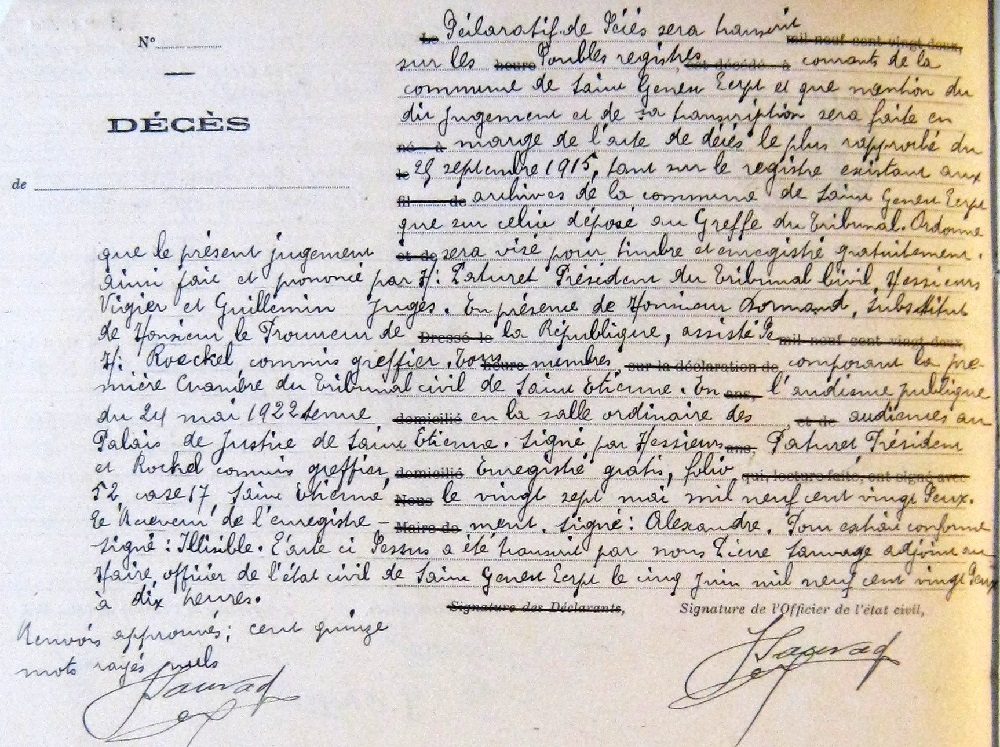 N°
DÉCÈS
de
Le Déclaratif de Décès sera transcrit mil neuf cent vingt deux,
sur les heure Doubles registres, est décédé à courants de la
commune de Saint Genest Lerpt et que mention du
dit jugement et de sa transcription sera faite en
né à marge de l'acte de décès le plus rapproché du
le 28 septembre 1915, tant sur le registre existant aux
fil de archives de la commune de Saint Genest Lerpt
que sur celui déposé au Greffe du Tribunal. Ordonne
que le présent jugement et de sera visé pour timbre et enregistré gratuitement.
Ainsi fait et prononcé par M. Paturet Président du Tribunal Civil, Messieurs
Vigier et Guillemin Juges. En présence de Monsieur Dormand, Substitut
de Monsieur le Procureur de Dressé le la République, assisté de mil neuf cent vingt deux,
M. Roeckel commis greffier. Tous heure membres sur la déclaration de composant la pre-
mière Chambre du Tribunal civil de Saint Etienne. En ans, l'audience publique
du 24 mai 1922 tenue domicilié en la salle ordinaire des et de audiences au
Palais de Justice de Saint Etienne. Signé par Messieurs ans, Paturet Président
et Rockel commis greffier domicilié Enregistré gratis, folio qui, lecture faite, ont signé avec
52, case 17, Saint Etienne, Nous le vingt sept mai mil neuf cent vingt Deux.
Le Receveur de l'enregistre- Maire de ment. Signé : Alexandre. Pour extrait conforme
Signé : Illisible. L'acte ci Dessus a été transcrit par nous Pierre Sauvage adjoint au
Maire, officier de l'état civil de Saint Genest Lerpt le cinq Juin mil neuf cent vingt Deux
à dix heures.
Signature des Déclarants, Signature de l'Officier de l'état civil,
Renvois approuvés ; cent quinze
mots rayés nuls